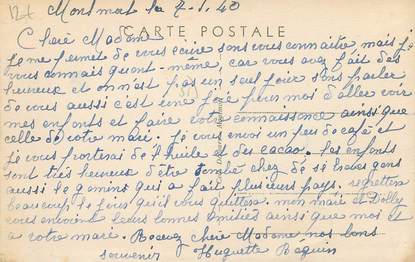 Montmort le 7-1.40
CARTE POSTALE
Chère Madame
je me permet de vous écrire sans vous connaitre, mais je
vous connais quant-même, car vous avez fait des
heureux et on n'est pas un seul soir sans parler
de vous aussi c'est une joie pour moi d'aller voir
mes enfants et faire votre connaissance ainsi que
celle de votre mari. Je vous envoi un peu de café et
je vous porterai de l'huile et des cacao. Les enfants
sont très heureux d'être tombé chez de si braves gens
aussi le gamins qui a fait plusieurs pays, regrettera
beaucoup le jour qu'il vous quittera. mon mari et Dolly
vous envoient leurs bonnes amitiés ainsi que moi et
a votre mari. Recevez chère Madame nos bons
souvenir Huguette Béguin